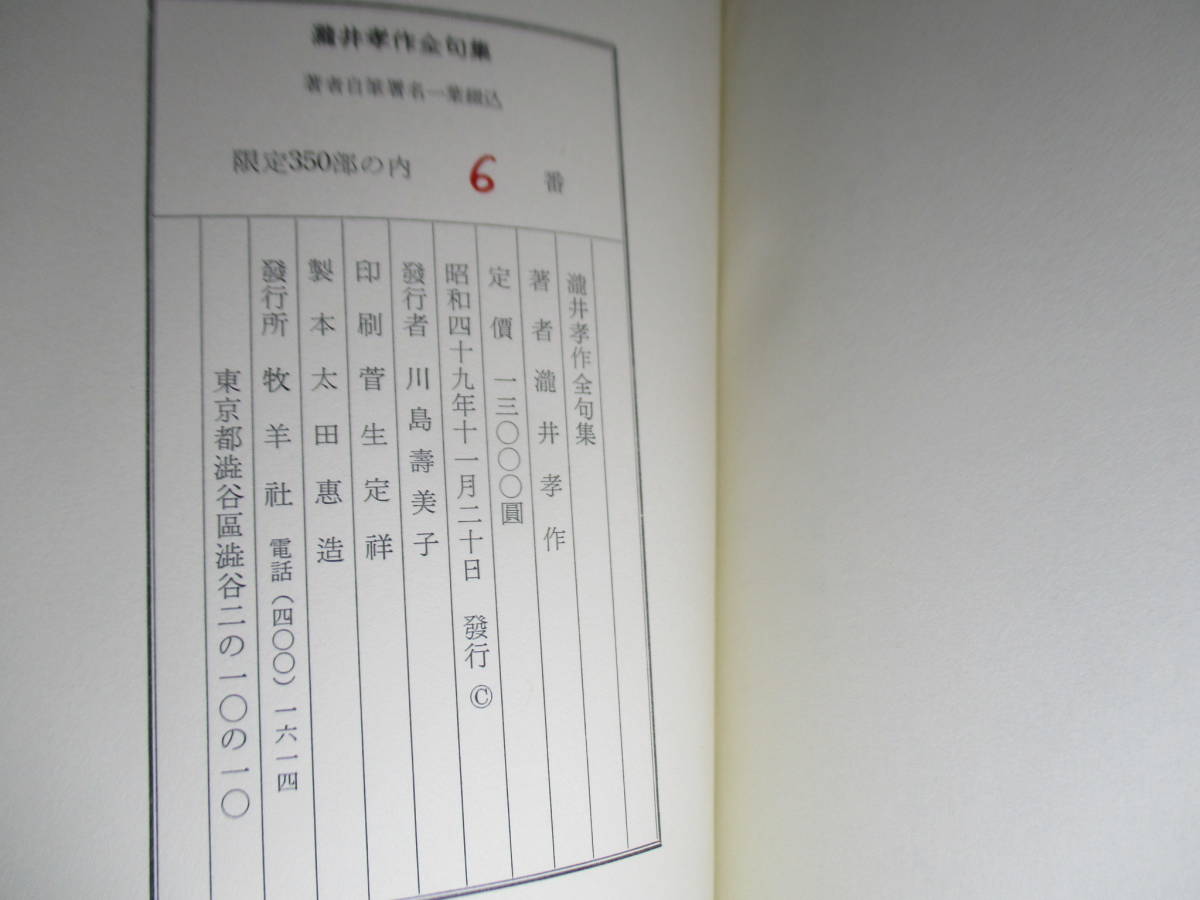 瀧井孝作全句集
著者自筆署名一葉綴込
限定350部の内 6 番
瀧井孝作全句集
著者 瀧井孝作
定價 一三〇〇〇圓
昭和四十九年十一月二十日 發行 ©
發行者 川島壽美子
印刷 菅生定祥
製本 太田惠造
發行所 牧羊社 電話(四〇〇)一六一四
東京都澁谷區澁谷二の一〇の一〇